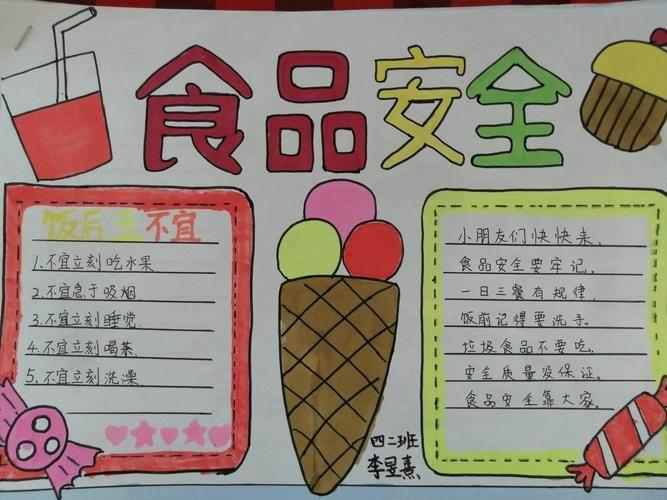 食品安全
饭后五不宜
1、不宜立刻吃水果
2、不宜急于吸烟
3、不宜立刻睡觉
4、不宜立刻喝茶
5、不宜立刻洗澡
小朋友们快快来,
食品安全要牢记。
一日三餐有规律,
饭前记得要洗手。
垃圾食品不要吃,
安全质量没保证。
食品安全靠大家。
四二班
李昱熹